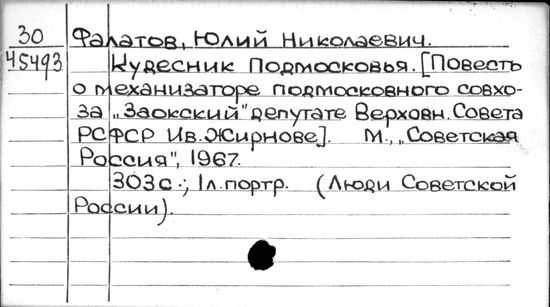 30 Фалатов, Юлий Николаевич.
45493 Кудесник Подмосковья. [Повесть
о механизаторе подмосковного совхо-
за „Заокский" депутате Верховн. Совета
РСФСР Ив. Жирнове]. М., „Советская
Россия", 1967.
303 с.; 1 л. портр. (Люди Советской
России).